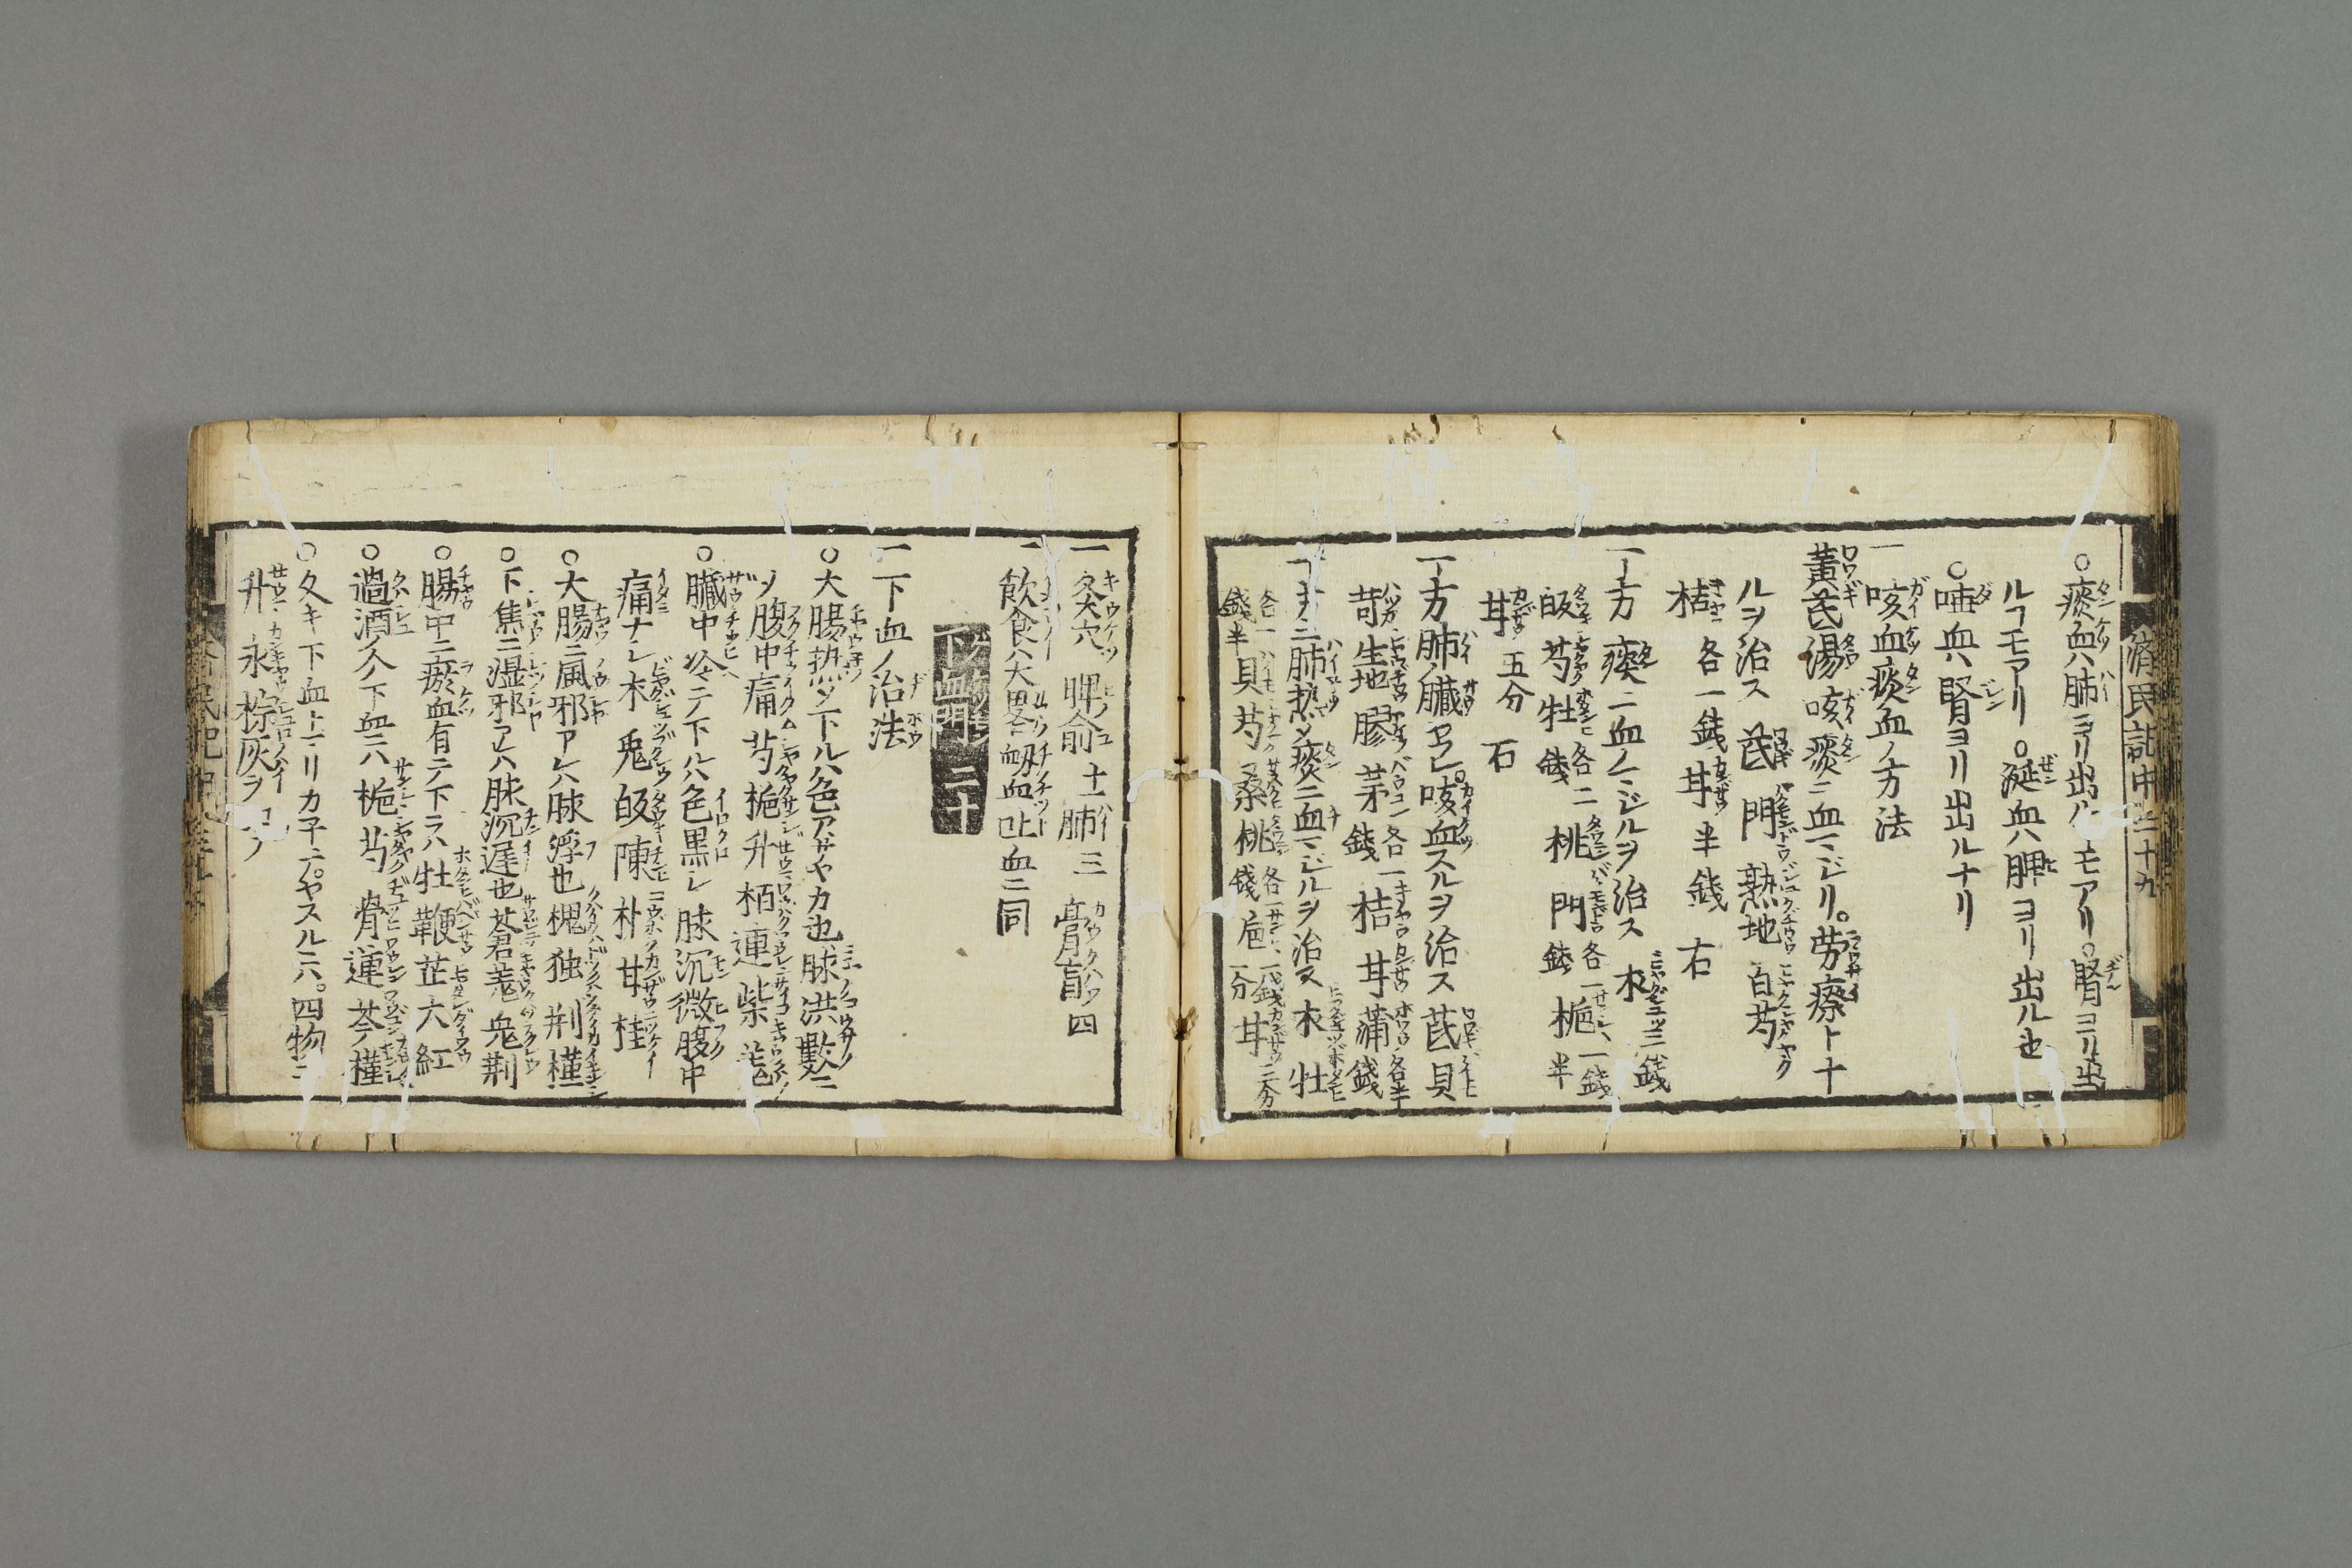 濟民記中 二十九
○痰血ハ肺ヨリ出ルモアリ。腎ヨリ出
ルヿモアリ。○涎血ハ脾ヨリ出ル也
○唾血ハ腎ヨリ出ルナリ
一咳血痰血ノ方法
黄芪湯 咳痰ニ血マジリ。労瘵ト
ルヲ治ス 芪 門 熟地 百 芍
桔各一銭 甘半銭 右
一方 痰ニ血ノマジルヲ治ス 朮三銭
皈 芍 牡各二銭 桃 門各一銭 梔一銭半
甘五分 右
一方 肺ノ臓ヤブレ。咳血スルヲ治ス 芪 貝
生地 膠 茅各一銭 桔 甘 蒲各半銭
一方ニ肺熱シ痰ニ血マジルヲ治ス 朮 牡
各一銭半 貝 芍 桑 桃各一銭 梔 甘二分
一灸穴 脾俞十一 肺三 膏肓四
一飲食ハ大畧衂血吐血ニ同
下血門 二十
一下血ノ治法
○大腸熱シ下ルハ色アザヤカ也脉洪數ニ
シ腹中痛 芍 梔 升 栢 連 柴 羗
○臓中冷テ下ルハ色黒シ脉沉微腹中
痛ナシ 朮 兎 皈 陳 朴 甘 桂
○大腸ニ風邪アレハ脉浮也 槐 独 荆 槿
○下焦ニ湿邪アレハ脉沉遅也 蒼 羗 兎 荆
○腸中ニ瘀血有テ下ラハ 牡 鞭 芷 六 紅
○過酒久下血ニハ 梔 芍 骨 連 芩 槿
○久キ下血トマリカ子テ。ヤスルニハ。四物ニ
升 永 棕灰ヲ